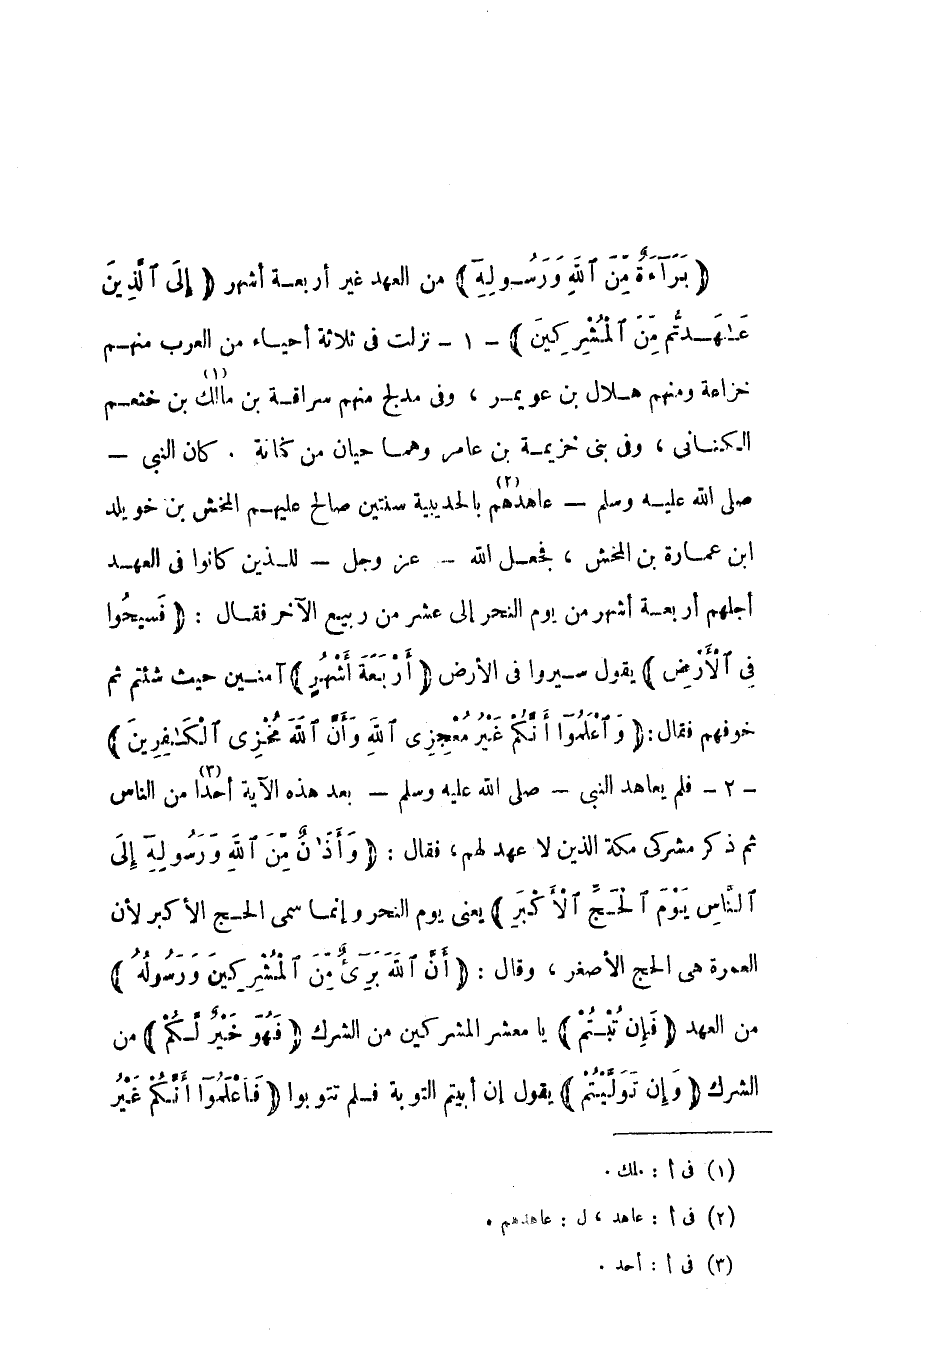 ﴿ بَرَآءَةٌ مِّنَ ٱللَّهِ وَرَسُولِهِ ﴾ من العهد غير أربعة أشهر ﴿ إِلَى ٱلَّذِينَ
عَـٰهَدتُّم مِّنَ ٱلْمُشْرِكِينَ ﴾ - ١ - نزلت فى ثلاثة أحياء من العرب منهم
خزاعة ومنهم هلال بن عويمر ، وفى مدلج منهم سراقة بن مالك (١) بن خثعم
الكنانى ، وفى بنى خزيمة بن عامر وهما حيان من كنانة . كان النبى —
صلى الله عليه وسلم — عاهدهم (٢) بالحديبية سنتين صالح عليهم المخش بن خويلد
ابن عمارة بن المخش ، فجعل الله - عز وجل — للذين كانوا فى العهد
أجلهم أربعة أشهر من يوم النحر إلى عشر من ربيع الآخر فقال : ﴿ فَسِيحُوا
فِى ٱلْأَرْضِ ﴾ يقول سيروا فى الأرض ﴿ أَرْبَعَةَ أَشْهُرٍ ﴾ آمنين حيث شئتم ثم
خوفهم فقال : ﴿ وَٱعْلَمُوٓا أَنَّكُمْ غَيْرُ مُعْجِزِى ٱللَّهِ وَأَنَّ ٱللَّهَ مُخْزِى ٱلْكَـٰفِرِينَ ﴾
- ٢ - فلم يعاهد النبى — صلى الله عليه وسلم — بعد هذه الآية أحدا (٣) من الناس
ثم ذكر مشركى مكة الذين لا عهد لهم ، فقال : ﴿ وَأَذَٰنٌ مِّنَ ٱللَّهِ وَرَسُولِهِ إِلَى
ٱلنَّاسِ يَوْمَ ٱلْحَجِّ ٱلْأَكْبَرِ ﴾ يعنى يوم النحر وإنما سمى الحج الأكبر لأن
العمرة هى الحج الأصغر ، وقال : ﴿ أَنَّ ٱللَّهَ بَرِىٓءٌ مِّنَ ٱلْمُشْرِكِينَ وَرَسُولُهُ ﴾
من العهد ﴿ فَإِن تُبْتُمْ ﴾ يا معشر المشركين من الشرك ﴿ فَهُوَ خَيْرٌ لَّكُمْ ﴾ من
الشرك ﴿ وَإِن تَوَلَّيْتُمْ ﴾ يقول إن أبيتم التوبة فلم تتوبوا ﴿ فَٱعْلَمُوٓا أَنَّكُمْ غَيْرُ
(١) فى أ : ملك .
(٢) فى أ : عاهد ، ل : عاهدهم .
(٣) فى أ : أحد .